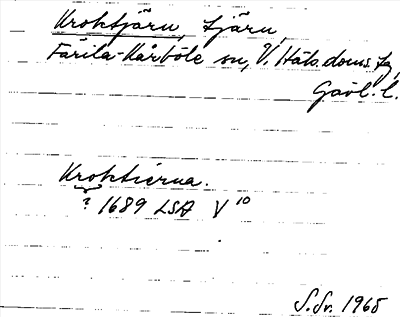 Kroktjärn, tjärn,
Färila-Kårböle sn, V. Häls. doms. fg,
Gävl. l.
Kroktierna.
? 1689 LSA V 10
S.Sv. 1965